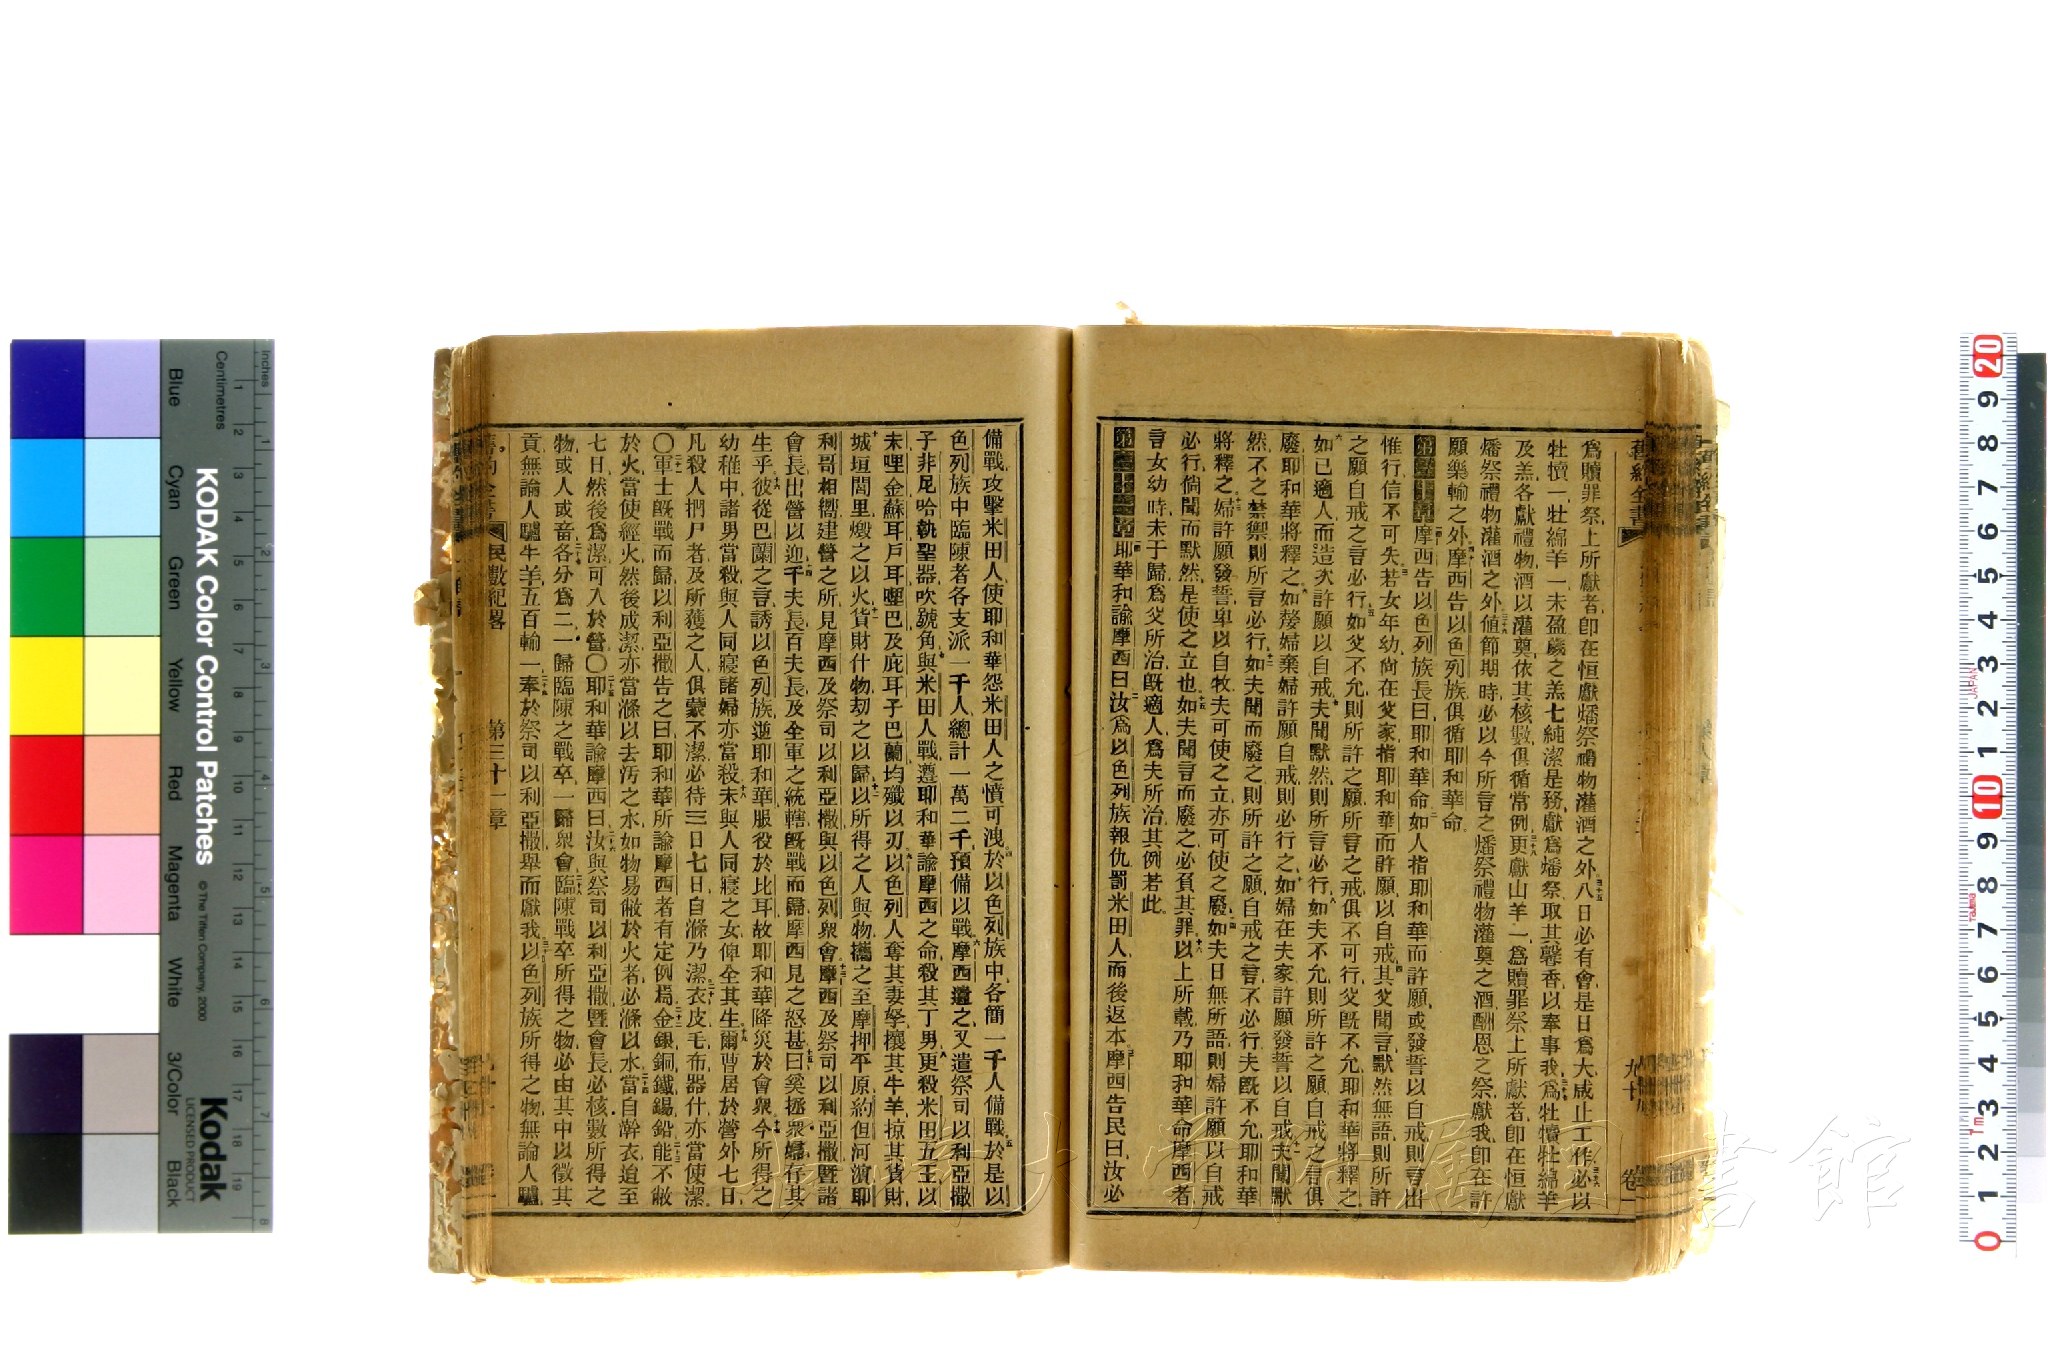 爲贖罪祭上所獻者卽在恒獻燔祭禮物灌酒之外八日必有會是日爲大咸止工作必以
牡犢一牡綿羊一未盈歲之羔七純潔是務獻爲燔祭取其馨香以奉事我爲牡犢牡綿羊
及羔各獻禮物酒以灌奠依其核數俱循常例更獻山羊一爲贖罪祭上所獻者卽在恒獻
燔祭禮物灌酒之外値節期時必以今所言之燔祭禮物灌奠之酒酬恩之祭獻我卽在許
願樂輸之外摩西告以色列族俱循耶和華命
第三十章摩西告以色列族長曰耶和華命如人指耶和華而許願或發誓以自戒則言出
惟行信不可失若女年幼尙在父家指耶和華而許願以自戒其父聞言默然無語則所許
之願自戒之言必行如父不允則所許之願所言之戒俱不可行父旣不允耶和華將釋之
如已適人而造次許願以自戒夫聞默然則所言必行如夫不允則所許之願自戒之言俱
廢耶和華將釋之如嫠婦棄婦許願自戒則必行之如婦在夫家許願發誓以自戒夫聞默
然不之禁禦則所言必行如夫聞而廢之則所許之願自戒之言不必行夫旣不允耶和華
將釋之婦許願發誓卑以自牧夫可使之立亦可使之廢如夫日無所語則婦許願以自戒
必行倘聞而默然是使之立也如夫聞言而廢之必負其罪以上所載乃耶和華命摩西者
言女幼時未于歸爲父所治旣適人爲夫所治其例若此
第三十一章耶華和諭摩西曰汝爲以色列族報仇罰米田人而後返本摩西告民曰汝必
舊約全書
九十
卷一
備戰攻擊米田人使耶和華怨米田人之憤可洩於以色列族中各簡一千人備戰於是以
色列族中臨陳者各支派一千人總計一萬二千預備以戰摩西遣之又遣祭司以利亞撒
子非尼哈執聖器吹號角與米田人戰遵耶和華諭摩西之命殺其丁男更殺米田五王以
未哩金蘇耳戶耳哩巴及庇耳子巴蘭均殲以刃以色列人奪其妻孥攘其牛羊掠其貨財
城垣閭里燬之以火貨財什物刧之以歸以所得之人與物攜之至摩押平原約但河濱耶
利哥相嚮建營之所見摩西及祭司以利亞撒與以色列衆會摩西及祭司以利亞撒曁諸
會長出營以迎千夫長百夫長及全軍之統轄旣戰而歸摩西見之怒甚曰奚拯衆婦存其
生乎彼從巴蘭之言誘以色列族逆耶和華服役於比耳故耶和華降災於會衆今所得之
幼稚中諸男當殺與人同寢諸婦亦當殺未與人同寢之女俾全其生爾曹居於營外七日
凡殺人捫尸者及所獲之人俱蒙不潔必待三日七日自滌乃潔衣皮毛布器什亦當使潔
〇軍士旣戰而歸以利亞撒告之曰耶和華所諭摩西者有定例焉金銀銅鐵錫鉛能不敝
於火當使經火然後成潔亦當滌以去汚之水如物易敝於火者必滌以水當自澣衣迨至
七日然後爲潔可入於營〇耶和華諭摩西曰汝與祭司以利亞撒曁會長必核數所得之
物或人或畜各分爲二一歸臨陳之戰卒一歸衆會臨陳戰卒所得之物必由其中以徵其
貢無論人驢牛羊五百輸一奉於祭司以利亞撒舉而獻我以色列族所得之物無論人驢
舊約全書
民數紀畧
第三十一章